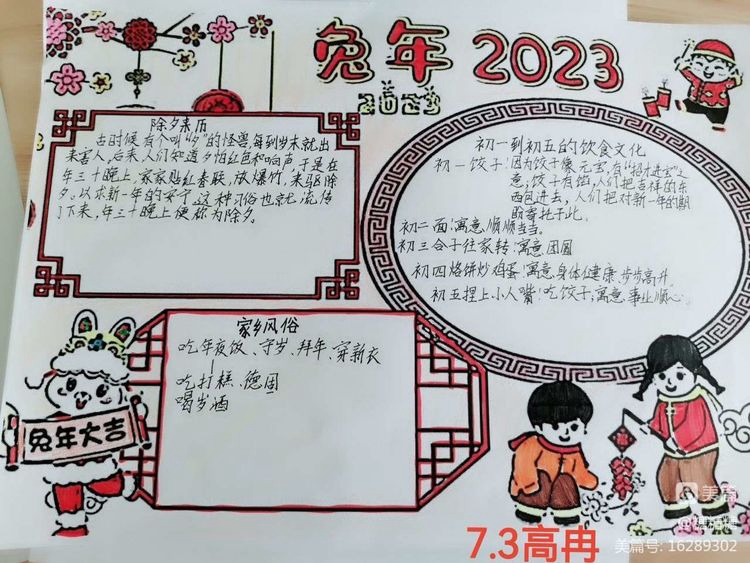 兔年 2023
2023
除夕来历
古时候有个叫"夕"的怪兽,每到岁末就出
来害人,后来,人们知道夕怕红色和响声,于是在
年三十晚上,家家贴红春联,放爆竹,来驱除
夕。以求新一年的安宁。这种习俗也就流传
了下来,年三十晚上便称为除夕。
初一到初五的饮食文化
初一饺子:因为饺子像元宝,有"招才进去"之
意;饺子有馅,人们把吉祥的东
西包进去,人们把对新一年的期
盼寄托于此。
初二面:寓意顺顺当当。
初三合子往家转:寓意团圆
初四烙饼炒鸡蛋:寓意身体健康,步步高升。
初五捏上小人嘴:吃饺子;寓意事业顺心。
家乡风俗
吃年夜饭、守岁、拜年、穿新衣
吃打糕、德固
喝岁酒
兔年大吉
福
7.3高冉
美篇
美篇号: 16289302